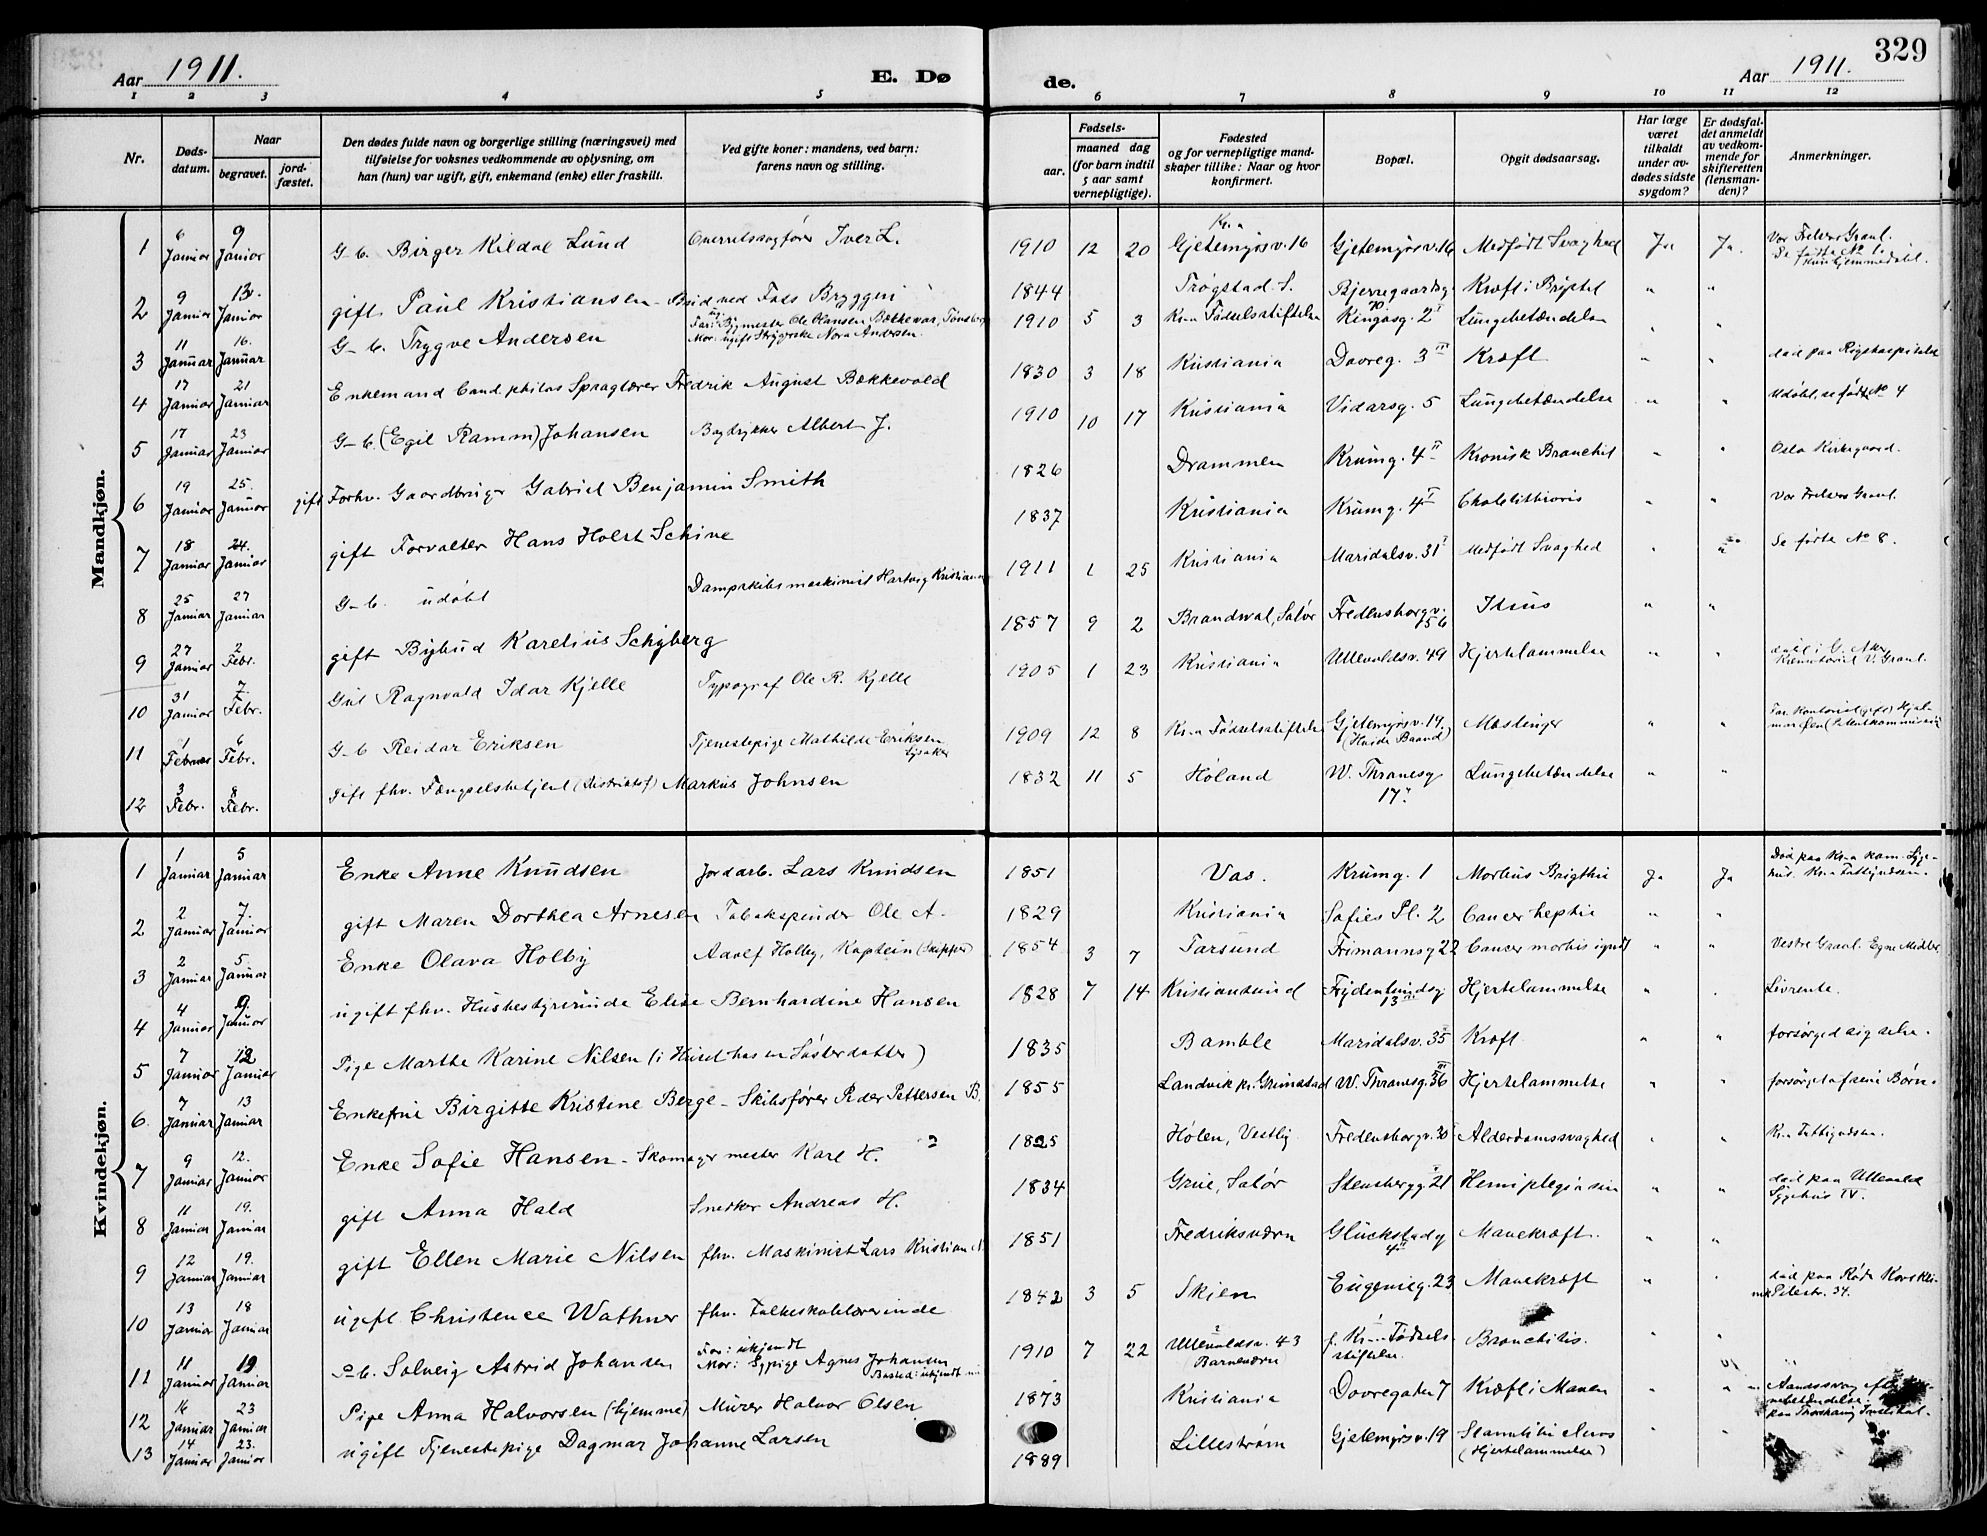 Aar 1911.
E. Dø
de.
Aar 1911.
329
1 2 3 4 5 6 7 8 9 10 11 12
Nr.
Døds-
datum.
Naar
begravet.
jord-
fæstet.
Den dødes fulde navn og borgerlige stilling (næringsvei) med
tilføielse for voksnes vedkommende av oplysning, om
han (hun) var ugift, gift, enkemand (enke) eller fraskilt.
Ved gifte koner: mandens, ved barn:
farens navn og stilling.
Fødsels-
aar.
maaned dag
(for barn indtil
5 aar samt
vernepligtige).
Fødested
og for vernepligtige mand-
skaper tillike: Naar og hvor
konfirmert.
Bopæl.
Opgit dødsaarsag.
Har læge
været
tilkaldt
under av-
dødes sidste
sygdom?
Er dødsfal-
det anmeldt
av vedkom-
mende for
skifteretten
(lensman-
den)?
Anmerkninger.
Mandkjøn.
1 6 Januar 9 Januar G-b. Birger Kildal Lund Overretssagfører Iver L. 1910 12 20 Kr.a Gjetemyrsv. 16 Gjetemyrsv. 16 Medfødt Svaghed Ja Ja. Vor Frelsers Gravl.
2 9 Januar 13. Januar gift Paul Kristiansen - Bud ved Foss Bryggeri 1844 Trøgstad S. Bjerregaardsg. 70 "  "
3 11 Januar 16. Januar G-b. Trygve Andersen Mor: ugift Strygerske Nora Andersen. 1910 5 3 Kr.a Fødselsstiftelse Kingosg. 2 I Lungebetændelse "  "
4 17 Januar 21 Januar Enkemand Cand. philos Sproglærer Fredrik August Bekkevold 1830 3 18 Kristiania Dovreg. 3 III Kræft "  " død paa Rigshospitalet
5 17 Januar 23 Januar G-b. (Egil Ramm) Johansen Bogtrykker Albert J. 1910 10 17 Kristiania Vidarsg. 5 Lungebetændelse "  " Udøbt, se fødte No 4
6 19 Januar 25. Januar gift Forhv. Gaardbruger Gabriel Benjamin Smith 1826 Drammen Krumg. 4 II Kronisk Bronchit "  " Oslo Kirkegaard.
7 18 Januar 24. Januar gift Forvalter Hans Holst Schive 1837 Kristiania Krumg. 4 I "  " Vor Frelsers Gravl.
8 25 Januar 27 Januar G-b. udøbt Dampskibsmaskinist Hartvig Kristiansen 1911 1 25 Kristiania Maridalsv. 31 I Medfødt Svaghed "  " Se fødte No 8.
9 27 Januar 2 Febr. gift Bybud Karelius Schyberg 1857 9 2 Brandval, Solør Fredensborgv. 56 "  "
10 31 Januar 7. Febr. Gut Ragnvald Idar Kjelle Typograf Ole R. Kjelle 1905 1 23 Kristiania Ullevoldsv. 49 Hjertelammelse "  "
11 1 Februar 6 Febr. G-b Reidar Eriksen Tjenestepige Mathilde Eriksen Lysaker 1909 12 8 Kr.a Fødselsstiftelse Gjetemyrsv. 14 (Hvide Baand) Meslinger "  "
12 3 Febr. 8 Febr. gift fhv. Fængselsbetjent (Distriktsf) Markus Johnsen 1832 11 5 Høland W. Thranesg 17 Lungebetændelse "  "
Kvindekjøn.
1 1 Januar 5 Januar Enke Anne Knudsen Jordarb. Lars Knudsen 1851 Vas. Krumg. 1 Morbus Brigthii Ja Ja Død paa Kr.a kom. Syge-
hus. Kr.a Fattigvæsen.
2 2 Januar 7. Januar gift Maren Dorthea Arnesen Tobakspinder Ole A. 1829 Kristiania Sofies Pl. 2 Cancer "  "
3 2 Januar 5 Januar Enke Olava Holby Adolf Holby, Kaptein (Skipper) 1854 3 7 Farsund Frimannsg 22 Cancer "  " Vestre Gravl. Egne Midler
4 4 Januar 9 Januar ugift fhv. Husbestyrerinde Elise Bernhardine Hansen 1828 7 14 Kristiansund Frydenlundsg 13 III Hjertelammelse "  " Livrente.
5 7 Januar 12 Januar Pige Marthe Karine Nilsen (i Huset hos en Søsterdatter) 1835 Bamble Maridalsv. 35 Kræft "  " forsørged sig selv.
6. 7 Januar 13 Januar Enkefrue Birgitte Kristine Berge - Skibsfører Peder Pettersen B. 1855 Landvik pr. Grimstad W. Thranesg. 36 III Hjertelammelse "  " forsørget af sine Børn.
7 9 Januar 12. Januar Enke Sofie Hansen - Skomagermester Karl H. 1825 Hølen, Vestby Fredensborgv. 30 Alderdomssvaghed "  " Kr.a Fattigvæsen.
8 11 Januar 19. Januar gift Anna Hald Snedker Andreas H. 1834 Grue, Solør Stensbergg 21 Hemiplegia sin "  " død paa Ullevold
Sygehus IV.
9 12 Januar 19. Januar gift Ellen Marie Nilsen fhv. Maskinist Lars Kristian N. 1851 Fredriksværn Glückstadg 4 II Mavekræft. "  "
10 13 Januar 18 Januar ugift Christence Wathner fhv. Folkeskolelærerinde 1842 3 5 Skien Eugenieg. 23 Mavekræft "  " død paa Røde Kors Kli-
nik Pilestr. 34.
11 11 Januar 19 Januar P-b. Solveig Astrid Johansen Far: ukjendt
Mor: Sypige Agnes Johansen
Bosted: ukjendt 1910 7 22 Ullevoldsv. 43
Barneværn f. Kr.a Fødsels-
stiftelse. Bronchitis. "
12 16 Januar 23 Januar Pige Anna Halvorsen (hjemme) Murer Halvor Olsen 1873 Kristiania Dovregaten 7 Kræft i Maven "  "
13 14 Januar 23. Januar ugift Tjenestepige Dagmar Johanne Larsen 1889 Lillestrøm Gjetemyrsv. 19 (Hjertelammelse) "  "